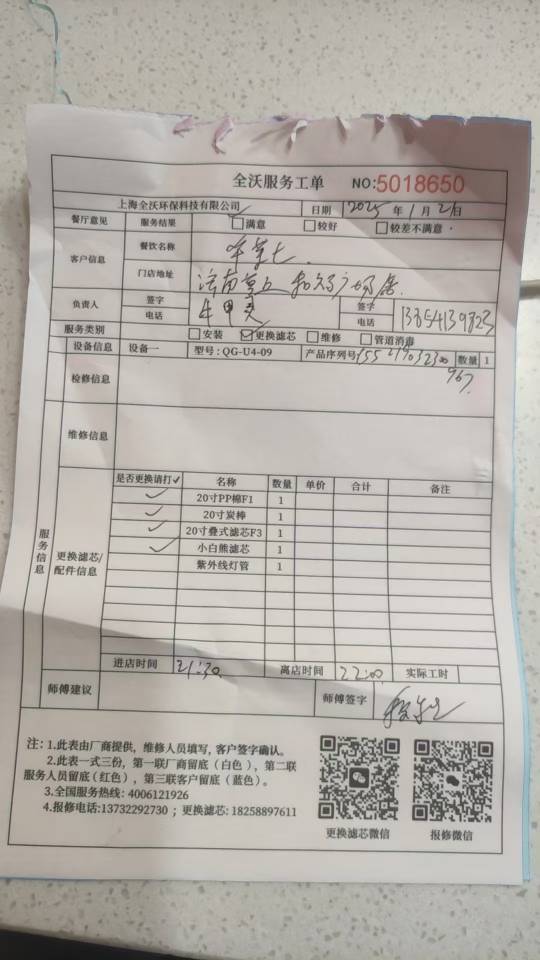 全沃服务工单 NO:5018650
上海全沃环保科技有限公司 日期 2025 年 1 月 21日
餐厅意见 服务结果 ☑满意 □较好 □较差不满意
客户信息 餐饮名称
门店地址
负责人 签字 签字
电话 电话
服务类别 □安装 ☑更换滤芯 □维修 □管道消毒
设备信息 设备一 型号: QG-U4-09 产品序列号 数量 1
967
检修信息
维修信息
服务信息
更换滤芯/配件信息
是否更换请打✓ 名称 数量 单价 合计 备注
✓ 20寸PP棉F1 1
✓ 20寸炭棒 1
✓ 20寸叠式滤芯F3 1
✓ 小白熊滤芯 1
紫外线灯管 1
进店时间 21:30 离店时间 22:00 实际工时
师傅建议 师傅签字
注: 1.此表由厂商提供，维修人员填写, 客户签字确认。
2.此表一式三份，第一联厂商留底（白色），第二联
服务人员留底（红色），第三联客户留底（蓝色）。
3.全国服务热线: 4006121926
4.报修电话:13732292730 ; 更换滤芯: 18258897611
更换滤芯微信 报修微信